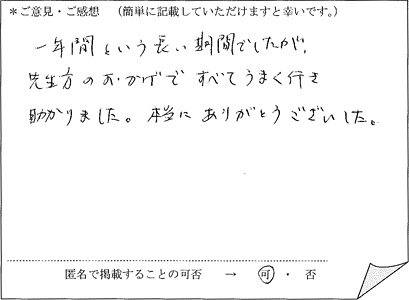 ＊ご意見・ご感想　（簡単に記載していただけますと幸いです。）
一年間という長い期間でしたが、
先生方のおかげで すべてうまく行き
助かりました。本当に ありがとうございした。
匿名で掲載することの可否　→　可 ・ 否